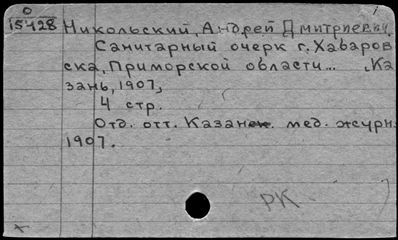 0
15428 Никольский, Андрей Дмитриевич.
Санитарный очерк г. Хабаров
ска, Приморской области... , Ка
зань, 1907,
4 стр.
Отд. отт. Казанск. мед. журн.
1907.
РК